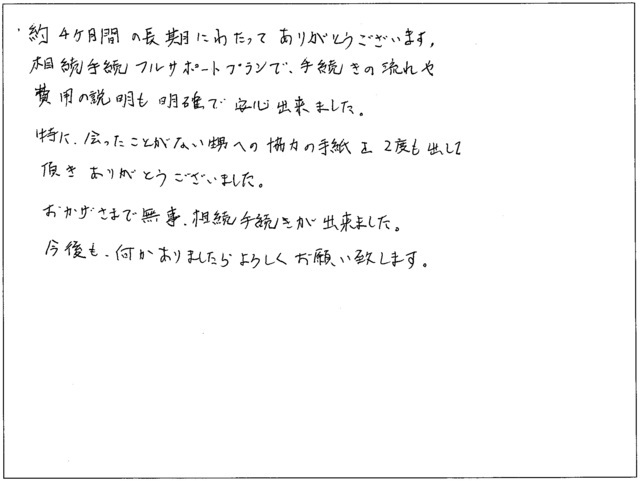 ・約4ケ月間の長期にわたってありがとうございます。
相続手続フルサポートプランで、手続きの流れや
費用の説明も明確で安心出来ました。
特に、会ったことがない甥への協力の手紙を2度も出して
頂きありがとうございました。
おかげさまで無事、相続手続きが出来ました。
今後も、何かありましたらよろしくお願い致します。